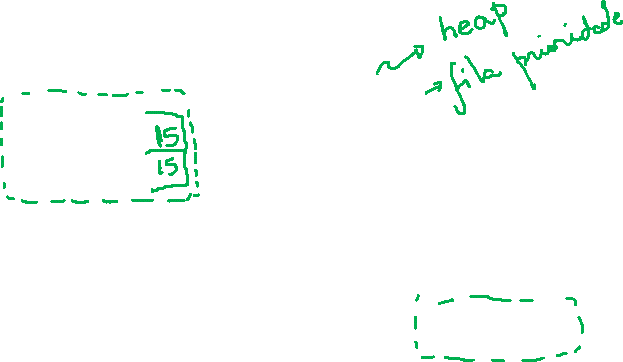 heap
fila prioridade
15
15